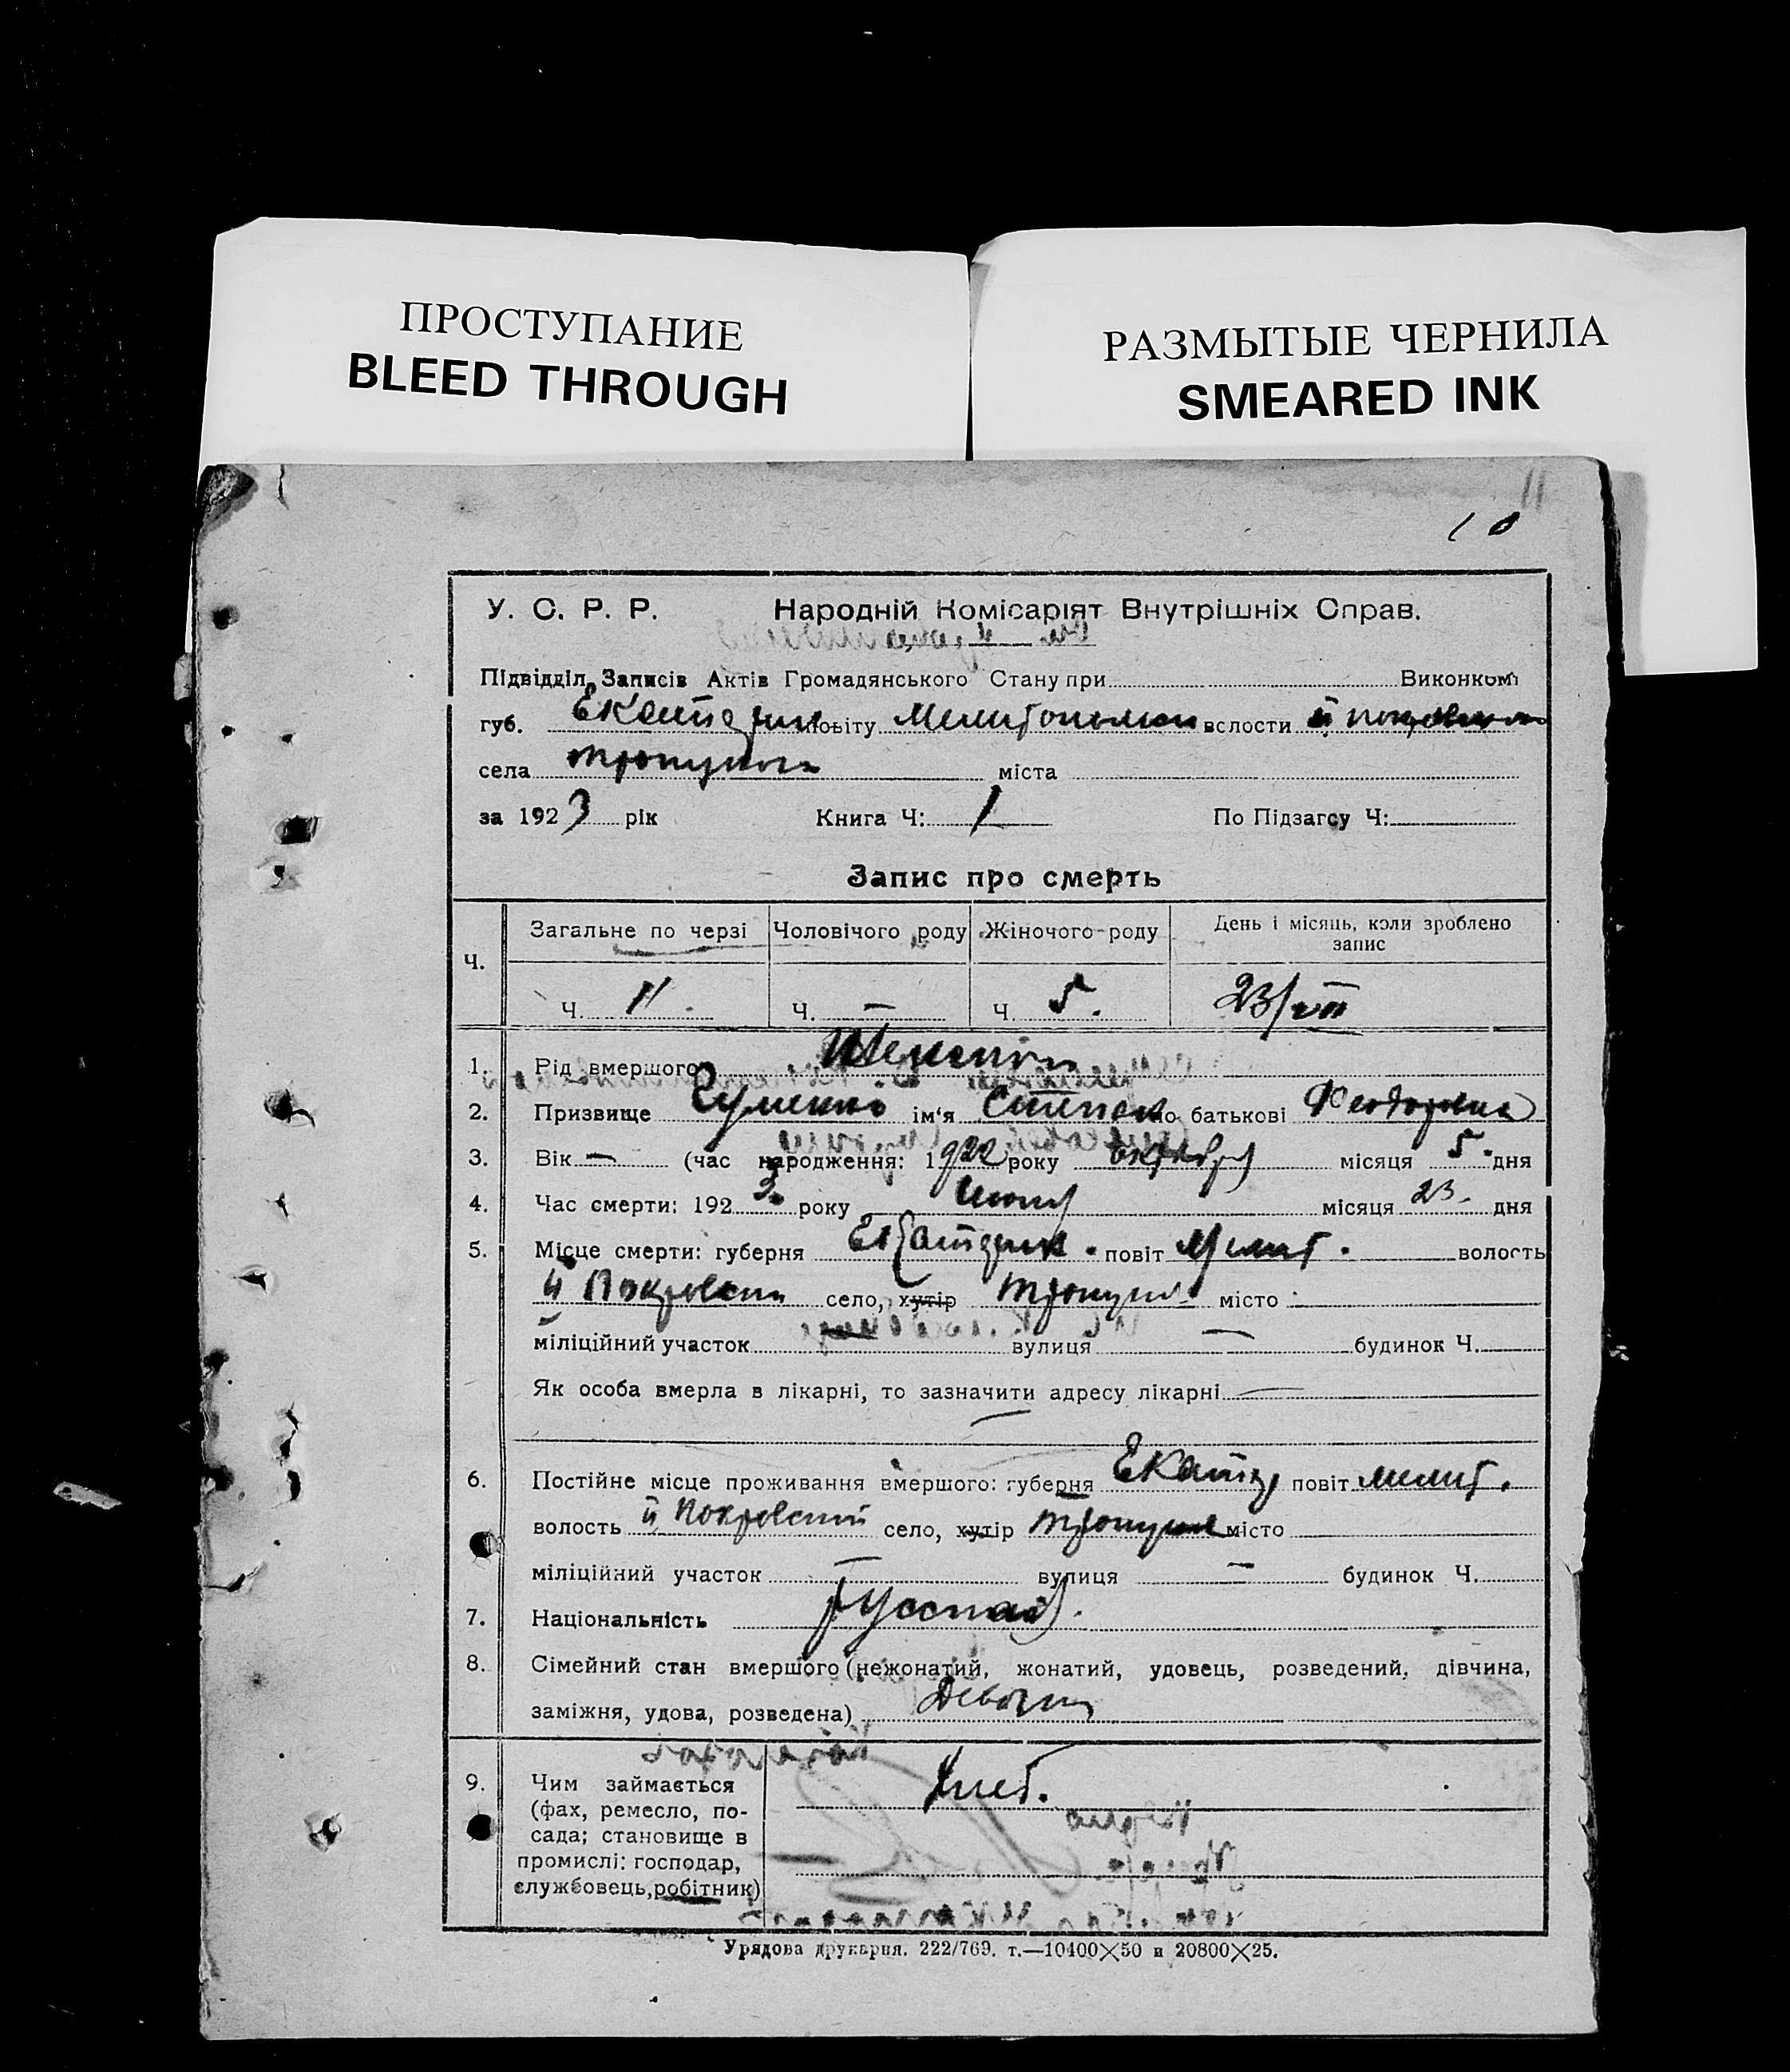 ПРОСТУПАНИЕ
BLEED THROUGH
РАЗМЫТЫЕ ЧЕРНИЛА
SMEARED INK
11
10
У. С. Р. Р. Народній Комісаріят Внутрішніх Справ.
Підвідділ Записів Актів Громадянського Стану при Виконком
губ. Екатерин повіту Мелитопольск вслости й покровского
села
міста
за 1923 рік Книга Ч: 1 По Підзагсу Ч:
Запис про смерть
Ч. Загальне по черзі Чоловічого роду Жіночого роду День і місяць, коли зроблено запис
Ч. 11. Ч. — Ч. 5. 23/VII
1. Рід вмершого Женский
2. Призвище ім'я по батькові Феодоровна
3. Вік — (час народження: 1922 року Октября місяця 5. дня
4. Час смерти: 1923 року Июля місяця 23. дня
5. Місце смерти: губерня Екатерин. повіт Мелит. волость
й Покровский село, хутір місто
міліційний участок — вулиця — будинок Ч.
Як особа вмерла в лікарні, то зазначити адресу лікарні —
—
6. Постійне місце проживання вмершого: губерня Екатер повіт мелит.
волость й Покровский село, хутір місто
міліційний участок — вулиця — будинок Ч.
7. Національність русская.
8. Сімейний стан вмершого (нежонатий, жонатий, удовець, розведений, дівчина,
заміжня, удова, розведена) Девочка
9. Чим займається
(фах, ремесло, по-
сада; становище в
промислі: господар,
службовець, робітник)
хлеб.
Урядова друкарня. 222/769. т.—10400×50 и 20800×25.